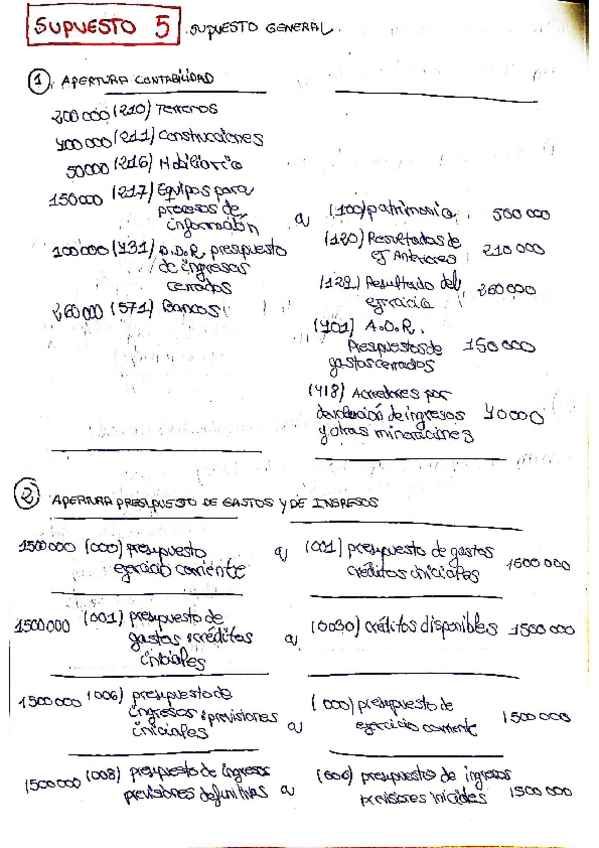 SUPUESTO 5 . SUPUESTO GENERAL.
1. APERTURA CONTABILIDAD
200 000 (210) Terrenos
400 000 (211) Construcciones
50000 (216) Mobiliario
150 000 (217) Equipos para
procesos de
información
a (100) patrimonio. 500 000
(120) Resultados de
ej Anteriores 210 000
100 000 (431) D.D.R. presupuesto
de ingresos
cerrados
(129) Resultado del
ejercicio 260 000
260 000 (571) Bancos
(401) A.O.R.
Presupuestos de
gastos cerrados 150 000
(418) Acreedores por
devolución de ingresos
y otras minoraciones 40000
2. APERTURA PRESUPUESTO DE GASTOS Y DE INGRESOS
1500 000 (000) presupuesto
ejercicio corriente
a (001) presupuesto de gastos
créditos iniciales 1500 000
1500 000 (001) presupuesto de
gastos créditos
iniciales
a (0030) créditos disponibles 1500 000
1500 000 (006) presupuesto de
ingresos: previsiones
iniciales
a (000) presupuesto de
ejercicio corriente 1500 000
1500 000 (008) presupuesto de ingresos
previsiones definitivas a
(006) presupuesto de ingresos
previsiones iniciales 1500 000